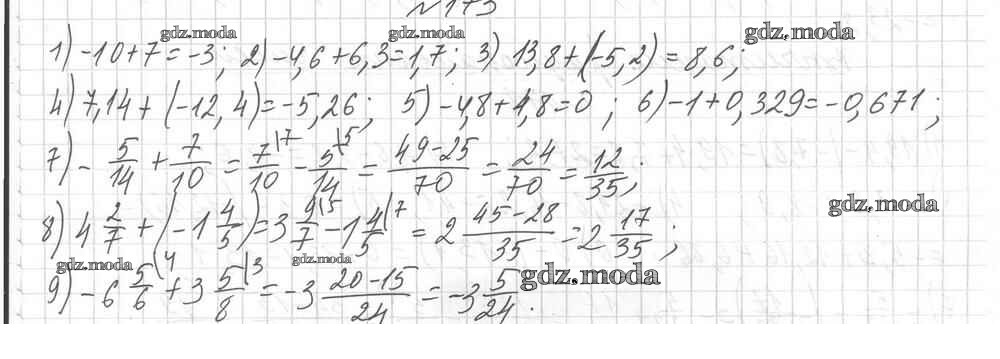 №173
gdz.moda gdz.moda gdz.moda
1) -10+7=-3; 2) -4,6+6,3=1,7; 3) 13,8+(-5,2)=8,6;
4) 7,14+(-12,4)=-5,26; 5) -4,8+4,8=0; 6) -1+0,329=-0,671;
7) -5/14+7/10=7/10\7-5/14\5=(49-25)/70=24/70=12/35;
gdz.moda
8) 4 2/7+(-1 4/5)=3 9/7\5-1 4/5\7=2 (45-28)/35=2 17/35;
gdz.moda gdz.moda gdz.moda
9) -6 5/6\4+3 5/8\3=-3 (20-15)/24=-3 5/24.